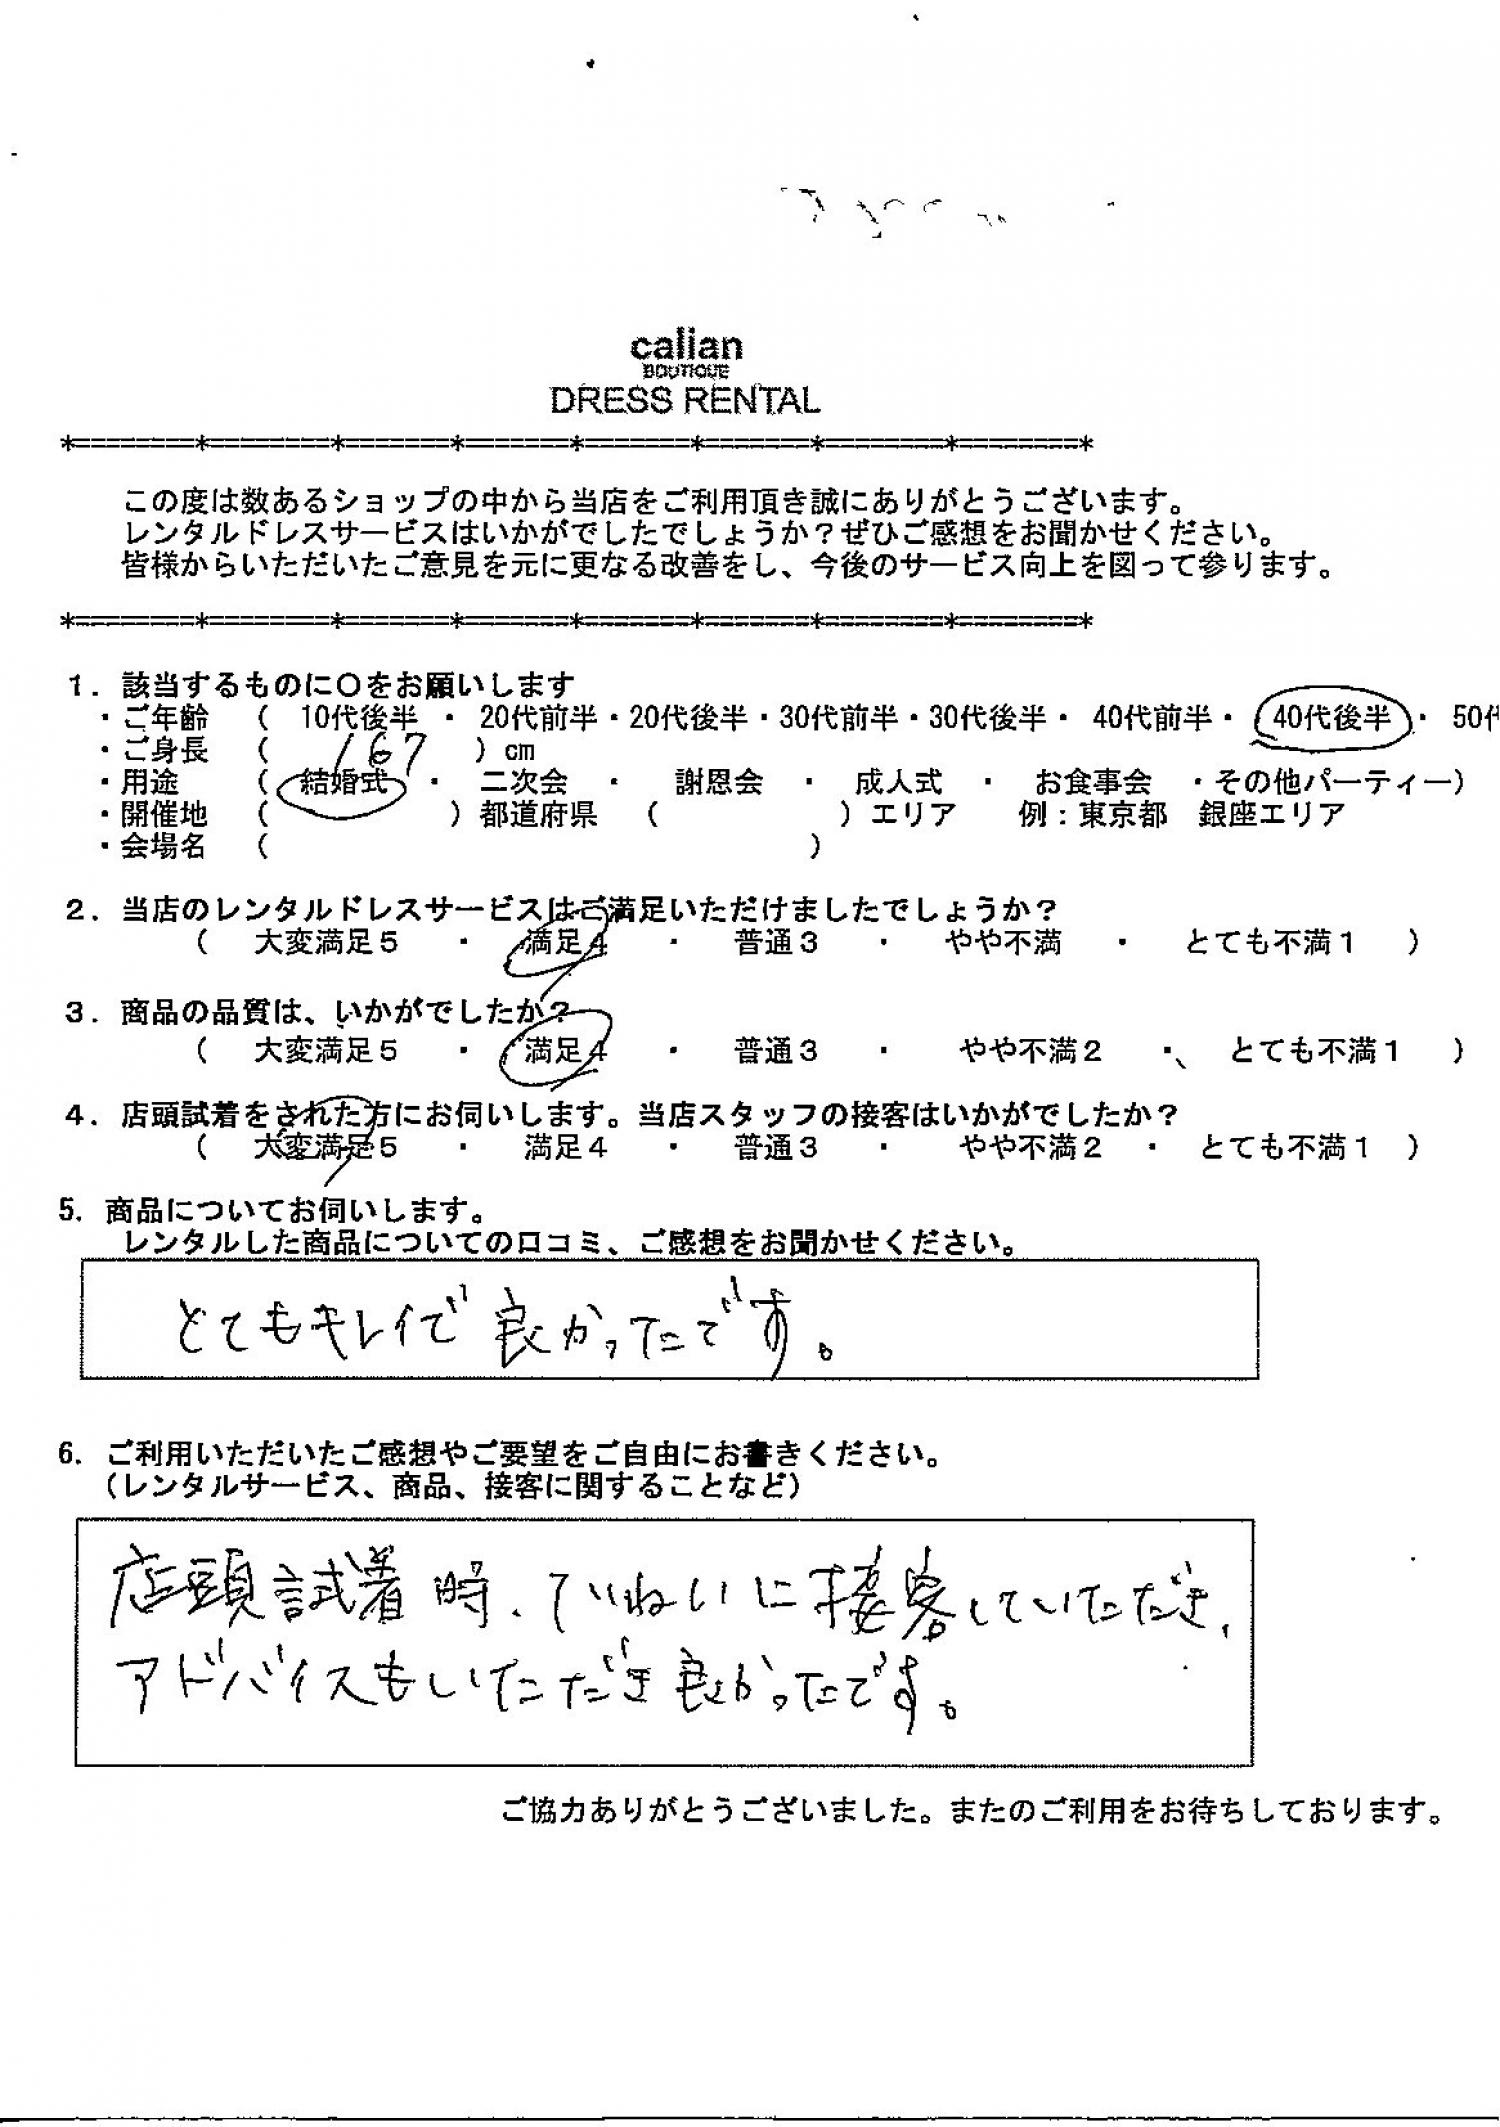 calian
BOUTIQUE
DRESS RENTAL
*========*========*=======*=======*=======*=======*========*========*
この度は数あるショップの中から当店をご利用頂き誠にありがとうございます。
レンタルドレスサービスはいかがでしたでしょうか？ぜひご感想をお聞かせください。
皆様からいただいたご意見を元に更なる改善をし、今後のサービス向上を図って参ります。
*========*========*=======*=======*=======*=======*========*========*
１．該当するものに〇をお願いします
・ご年齢　（　10代後半　・　20代前半・20代後半・30代前半・30代後半・　40代前半・　40代後半・　50代
・ご身長　（　167　）cm
・用途　（　結婚式　・　二次会　・　謝恩会　・　成人式　・　お食事会　・その他パーティー）
・開催地　（　　　　　　）都道府県　（　　　　　　）エリア　　例：東京都　銀座エリア
・会場名　（　　　　　　　　　　　　　　　　　　）
２．当店のレンタルドレスサービスはご満足いただけましたでしょうか？
（　大変満足５　・　満足４　・　普通３　・　やや不満　・　とても不満１　）
３．商品の品質は、いかがでしたか？
（　大変満足５　・　満足４　・　普通３　・　やや不満２　・　とても不満１　）
４．店頭試着をされた方にお伺いします。当店スタッフの接客はいかがでしたか？
（　大変満足５　・　満足４　・　普通３　・　やや不満２　・　とても不満１　）
5．商品についてお伺いします。
レンタルした商品についての口コミ、ご感想をお聞かせください。
とてもキレイで良かったです。
6．ご利用いただいたご感想やご要望をご自由にお書きください。
（レンタルサービス、商品、接客に関することなど）
店頭試着時、ていねいに接客していただき、
アドバイスもいただき良かったです。
ご協力ありがとうございました。またのご利用をお待ちしております。